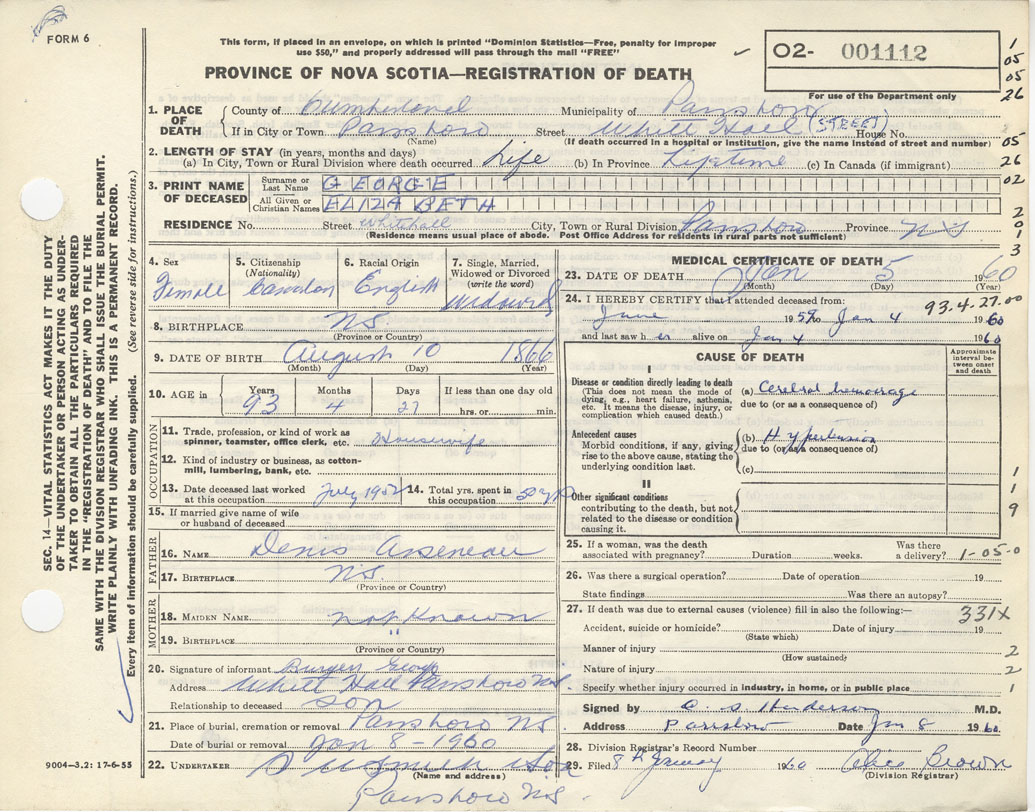 FORM 6
This form, if placed in an envelope, on which is printed "Dominion Statistics—Free, penalty for improper
use $50," and properly addressed will pass through the mail "FREE"
PROVINCE OF NOVA SCOTIA—REGISTRATION OF DEATH
02- 001112
For use of the Department only
1
05
05
26
05
26
02
2
0
1
3
SEC. 14—VITAL STATISTICS ACT MAKES IT THE DUTY
OF THE UNDERTAKER OR PERSON ACTING AS UNDER-
TAKER TO OBTAIN ALL THE PARTICULARS REQUIRED
IN THE "REGISTRATION OF DEATH" AND TO FILE THE
SAME WITH THE DIVISION REGISTRAR WHO SHALL ISSUE THE BURIAL PERMIT.
WRITE PLAINLY WITH UNFADING INK. THIS IS A PERMANENT RECORD.
Every item of information should be carefully supplied. (See reverse side for instructions.)
1. PLACE OF DEATH County of Cumberland Municipality of Parrsboro
If in City or Town Parrsboro Street White Hall (STREET) House No.
(Name) (If death occurred in a hospital or institution, give the name instead of street and number)
2. LENGTH OF STAY (in years, months and days)
(a) In City, Town or Rural Division where death occurred Life (b) In Province Lifetime (c) In Canada (if immigrant)
3. PRINT NAME OF DECEASED Surname or Last Name GEORGE
All Given or Christian Names ELIZABETH
RESIDENCE No. Street Whitehall City, Town or Rural Division Parrsboro Province NS
(Residence means usual place of abode. Post Office Address for residents in rural parts not sufficient)
4. Sex 5. Citizenship (Nationality) 6. Racial Origin 7. Single, Married, Widowed or Divorced (write the word)
Female Canadian English Widowed
8. BIRTHPLACE NS
(Province or Country)
9. DATE OF BIRTH August 10 1866
(Month) (Day) (Year)
10. AGE in Years Months Days If less than one day old
93 4 27 hrs. or min.
OCCUPATION
11. Trade, profession, or kind of work as
spinner, teamster, office clerk, etc. Housewife
12. Kind of industry or business, as cotton-
mill, lumbering, bank, etc.
13. Date deceased last worked at this occupation July 1952 14. Total yrs. spent in this occupation 50 yrs
15. If married give name of wife
or husband of deceased
FATHER
16. NAME Denis Arseneau
17. BIRTHPLACE NS.
(Province or Country)
MOTHER
18. MAIDEN NAME not Known
19. BIRTHPLACE "
(Province or Country)
20. Signature of informant George
Address White Hall Parrsboro NS.
Relationship to deceased son
21. Place of burial, cremation or removal Parrsboro NS
Date of burial or removal Jan 8 - 1960
22. UNDERTAKER Smith
(Name and address)
Parrsboro NS.
9004—3.2: 17-6-55
MEDICAL CERTIFICATE OF DEATH
23. DATE OF DEATH Jan 5 1960
(Month) (Day) (Year)
24. I HEREBY CERTIFY that I attended deceased from: 93.4.27.00
June 1957 to Jan 4 1960
and last saw her alive on Jan 4 1960
CAUSE OF DEATH
Approximate interval between onset and death
I
Disease or condition directly leading to death
(This does not mean the mode of
dying, e.g., heart failure, asthenia,
etc. It means the disease, injury, or
complication which caused death.)
(a) Cerebral hemorrage
due to (or as a consequence of)
Antecedent causes
Morbid conditions, if any, giving
rise to the above cause, stating the
underlying condition last.
(b) Hypertension
due to (or as a consequence of)
(c)
II
Other significant conditions
contributing to the death, but not
related to the disease or condition
causing it.
1
1
9
25. If a woman, was the death Was there
associated with pregnancy? Duration weeks. a delivery? 1-05-0
26. Was there a surgical operation? Date of operation 19
State findings Was there an autopsy?
27. If death was due to external causes (violence) fill in also the following:— 331X
Accident, suicide or homicide? Date of injury 19
(State which)
Manner of injury 2
(How sustained)
Nature of injury 2
Specify whether injury occurred in industry, in home, or in public place 1
Signed by C. S. Henderson M.D.
Address Parrsboro Date Jan 8 1960
28. Division Registrar's Record Number
29. Filed 8th January 1960 Alice Brown
(Division Registrar)